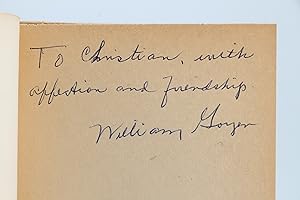 To Christian, with
affection and friendship
William Goyen